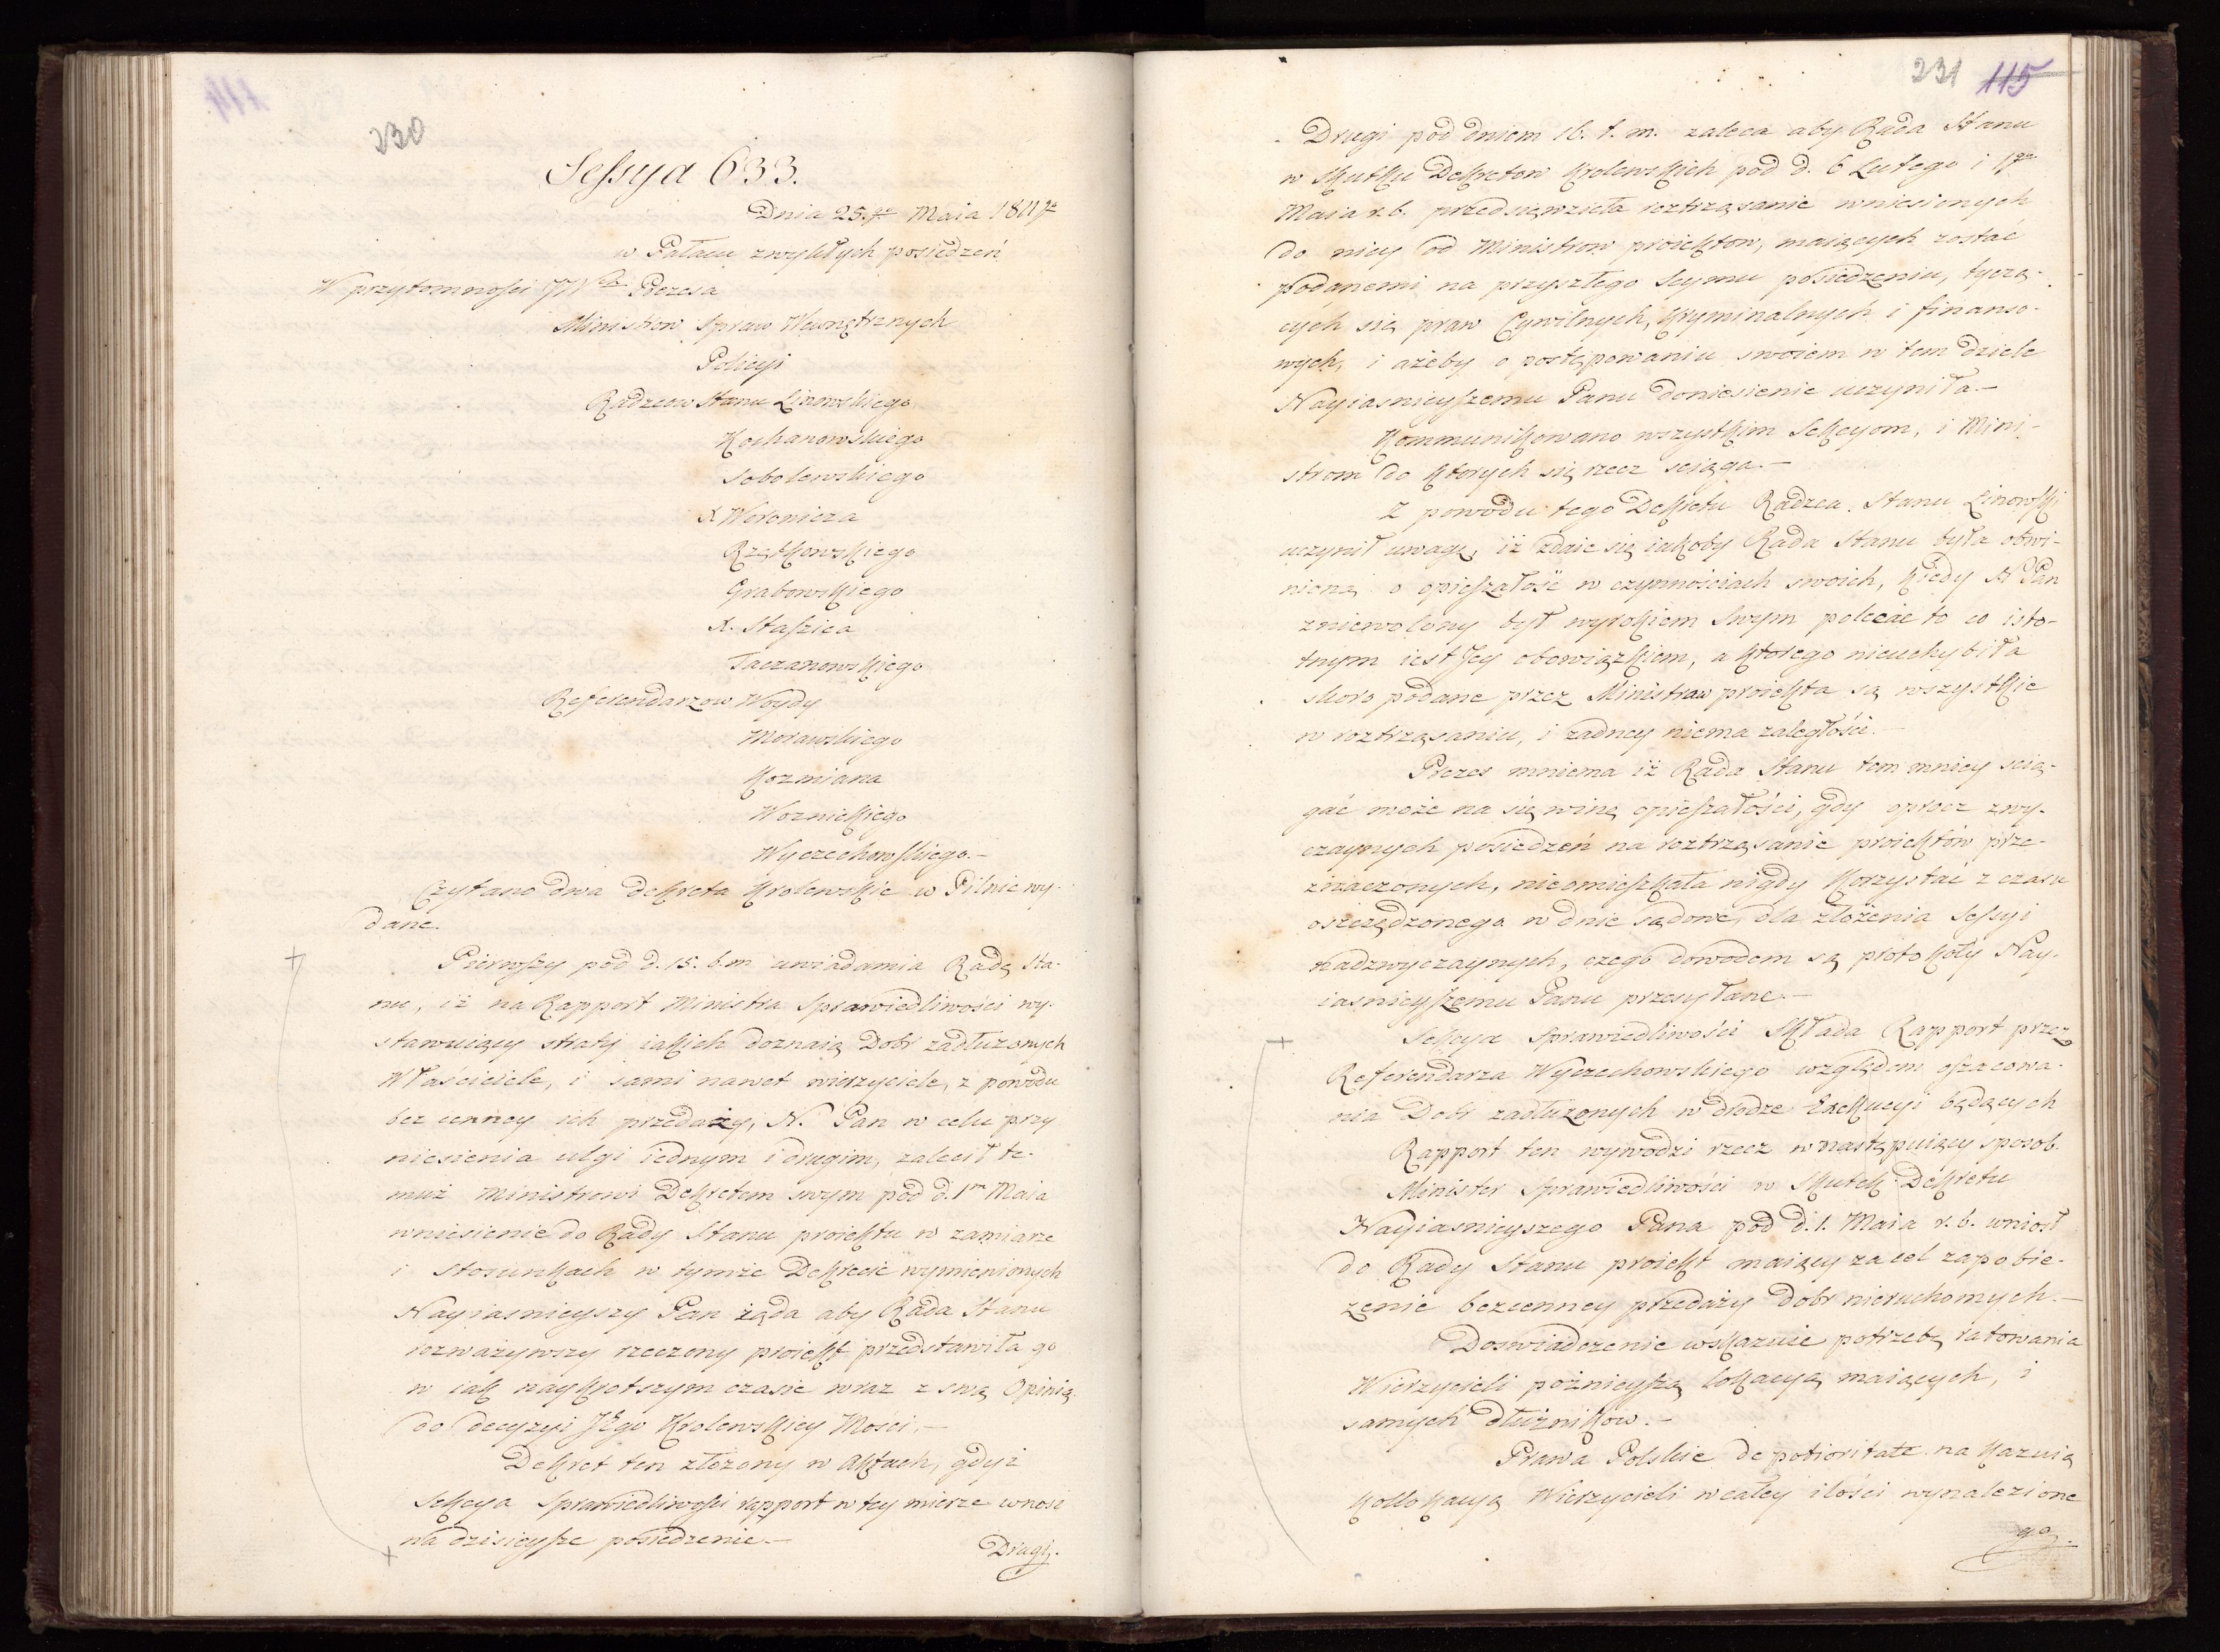 230
Sessya 633.
Dnia 25.go Maia 1811 go
w Pałacu zwykłych posiedzeń
W przytomności Prezesa
Ministrow Spraw Wewnętrznych
Policyi
Radzcow Stanu Linowskiego
Kochanowskiego
Sobolewskiego
X Woronicza
Rządkowskiego
Grabowskiego
X. Staszica
Taczanowskiego
Referendarzow Woydy
Morawskiego
Kozmiana
Woznickiego
Wyczechowskiego.–
Czytano dwa dekreta Krolewskie w Pilnie wy-
dane.
Pierwszy pod d. 15. b.m uwiadamia Radę Sta-
nu, iż na Rapport Ministra Sprawiedliwości wy-
stawuiący straty iakich doznaią Dobr zadłużonych
Właściciele, i sami nawet wierzyciele, z powodu
bez cenney ich przedaży, N. Pan w celu przy
niesienia ulgi iednym i drugim, zalecił te-
muż Ministrowi Dekretem swym pod d. 1m Maia
wniesienie do Rady Stanu proiektu w zamiarze
i stosunkach w tymże Dekrecie wymienionych
Nayiasnieyszy Pan żąda aby Rada Stanu
rozważywszy rzeczony proiekt przedstawiła go
w iak naykrotszym czasie wraz z swą Opinią
do decyzyi JEgo Krolewskiey Mości.–
Dekret ten złożony w Aktach, gdyż
Sekcya Sprawiedliwości rapport w tey mierze wnosi
na dzisieysze posiedzenie.–
Drugi.
231 115
Drugi pod dniem 16. t. m. zaleca aby Rada Stanu
w skutku Dekretow Krolewskich pod d. 6 Lutego i 1go
Maia r.b. przedsięwzieła roztrząsanie wniesionych
do niey od Ministrow proiektow, maiących zostać
podanemi na przyszłego Seymu posiedzeniu, tyczą-
cych się praw Cywilnych, kryminalnych i finanso-
wych, i ażeby o postępowaniu swoiem w tem dziele
Nayiasnieyszemu Panu doniesienie uczyniła.–
Kommunikowano wszystkim Sekcyom, i Mini-
strom do ktorych się rzecz sciąga.–
Z powodu tego Dekretu Radzca Stanu Linowski
uczynił uwagę, iż zdaie się iakoby Rada Stanu była obwi-
nioną o opieszałość w czynnościach swoich, kiedy N Pan
zniewolony był wyrokiem Swym polecać to co isto-
tnym iest Jey obowiązkiem, a ktorego nieuchybiła
skoro podane przez Ministrow proiekta są wszystkie
w roztrząsaniu, i żadney niema zaległości.–
Prezes mniema iż Rada Stanu tem mniey scią-
gać może na się winę opieszałości, gdy oprocz zwy-
czaynych posiedzeń na roztrząsanie proiektów prze-
znaczonych, nieomieszkała nigdy korzystać z czasu
oszczędzonego w dnie sądowe, dla złożenia Sessyi
nadzwyczaynych, czego dowodem są protokoły Nay-
iasnieyszemu Panu przesyłane.–
Sekcya Sprawiedliwości składa Rapport przez
Referendarza Wyczechowskiego względem oszacowa-
nia Dobr zadłużonych w drodze Exekucyi będących
Rapport ten wywodzi rzecz w następuiący sposob.
Minister Sprawiedliwości w skutek Dekretu
Nayiasnieyszego Pana pod d. 1. Maia r.b. wniosł
do Rady Stanu proiekt maiący za cel zapobie-
żenie bezcenney przedaży Dobr nieruchomych.–
Doswiadczenie wskazuie potrzebę ratowania
Wierzycieli poźnieyszą lokacyą maiących, i
samych dłużnikow.–
Prawa Polskie de potioritate nakazuią
kollokacyą Wierzycieli w całey ilości wynalezione
go.